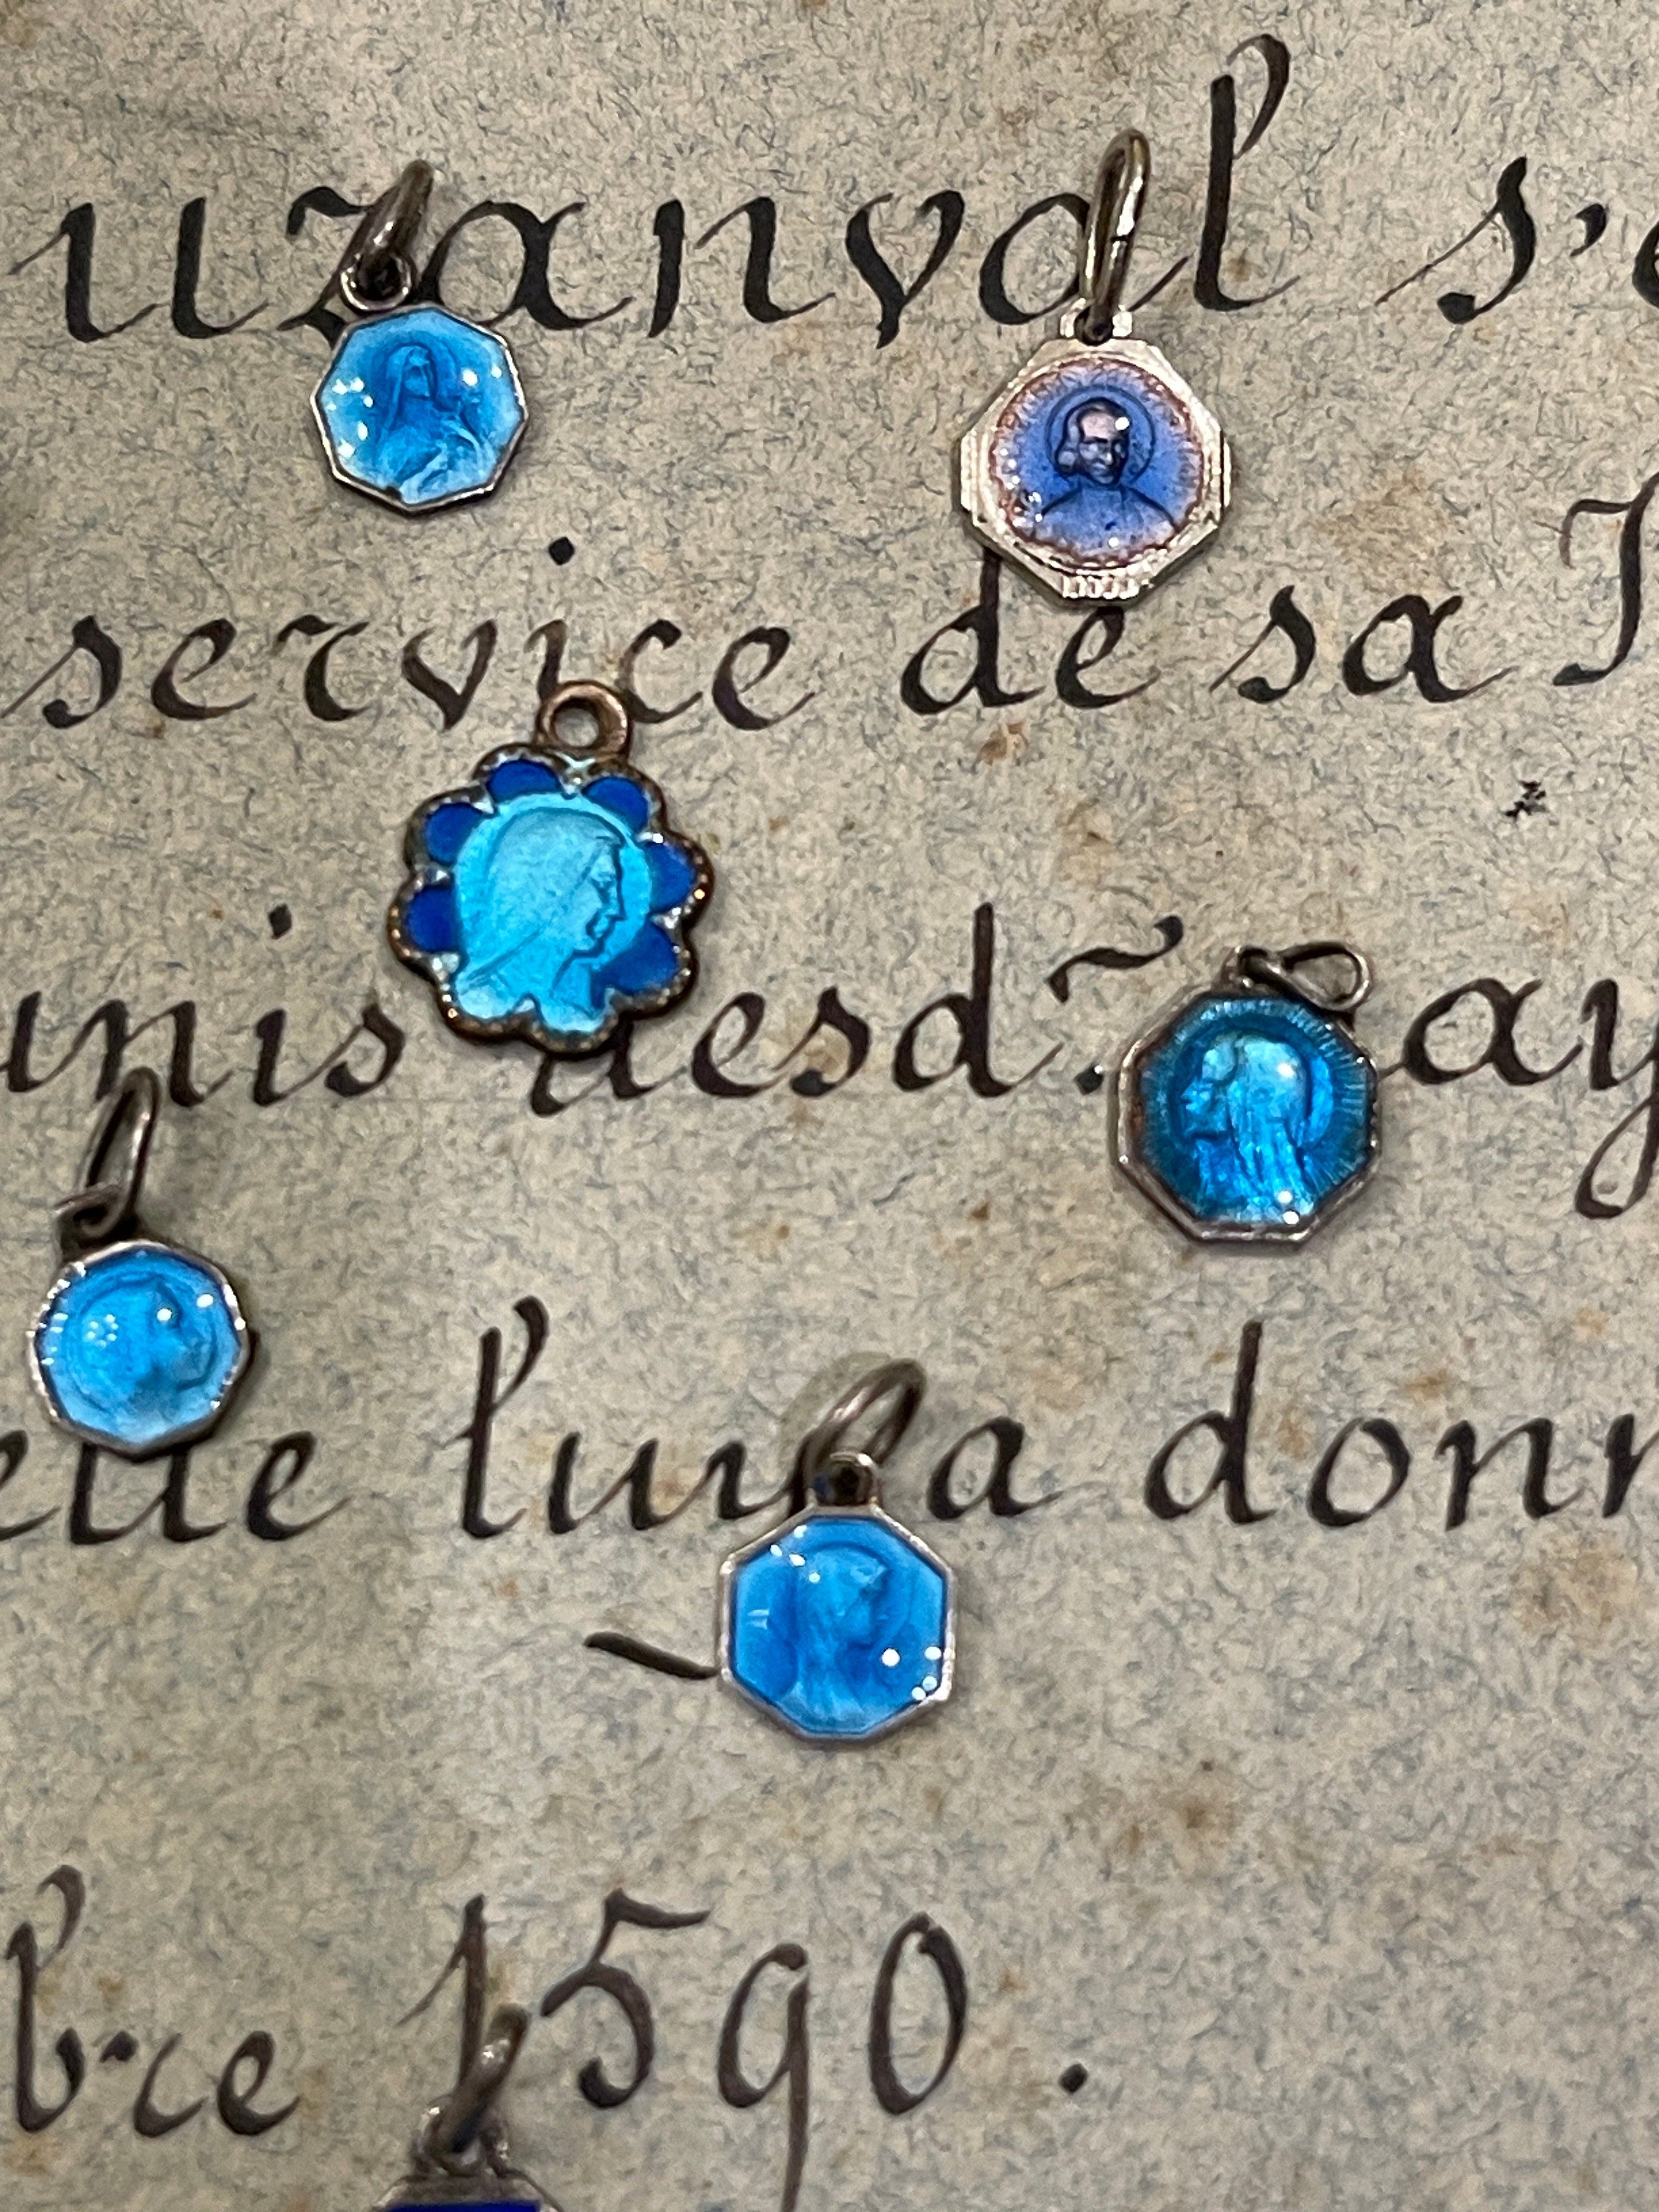 uzanval s'e
service de sa
unis desd. ay
elle luy a donn
bre 1590.